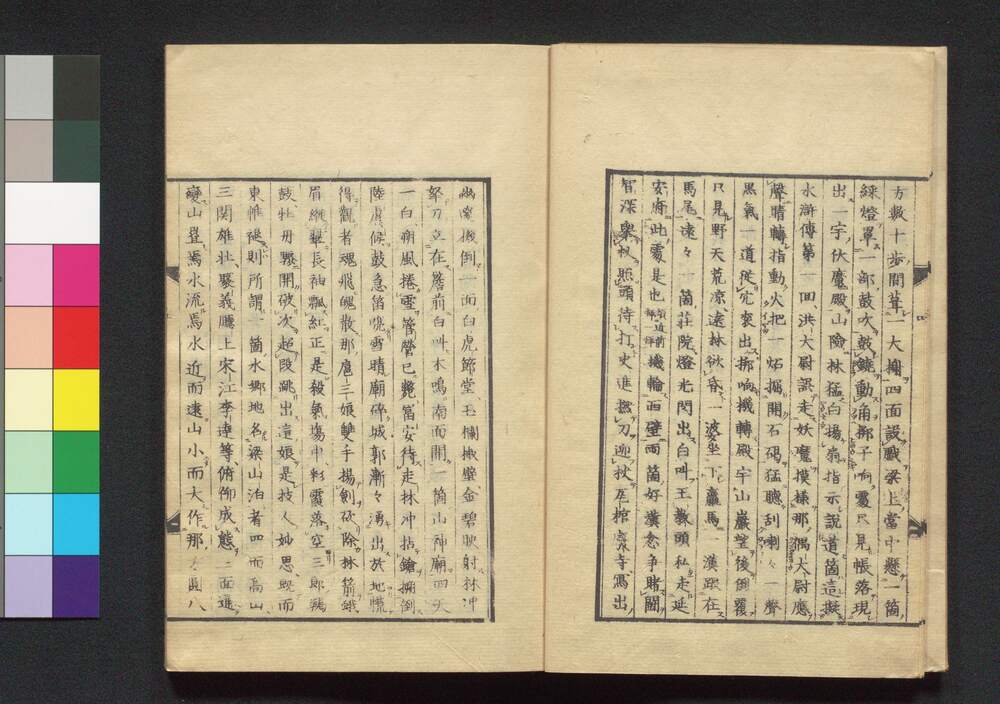 方數十步間葺一大搠四面設戲梁上當中懸一箇
綵燈罩一部鼓吹鼓鐃動角梆子响處只見帳落現
出一宇伏魔殿山險林猛白揚扇指示說道箇這擬
水滸傳第一回洪大尉誤走妖魔摸樣那偶大尉應
聲晴轉指動火把一炬掘開石碣猛聽刮喇々一聲
黑氣一道從穴衮出梆响機轉殿宇山巖望後倒覆
只見野天荒凉遠林欲昏一婆坐下驢馬一漢跟在
馬尾遠々一箇莊院燈光閃出白叫王教頭私走延
安府此處是也 機輪西壁兩箇好漢忿爭賭鬪
智深舉杖照頭待打史進撫刀迎 瓦棺 寺寫出
幽 搬倒一面白虎節堂玉欄 壁金碧映射林冲
拏刀立在簷前白叫木鳴南面開一箇山神廟四天
一白朔風捲雪管營已斃富安待走林冲拈鎗搠倒
陸虞候鼓急笛 雪晴廟碎城郭漸々湧出於地
得觀者魂飛魄散那扈三娘雙手揚劍砍除林箭
眉 長袖飄紅正是殺氣塲中彩雲落空三郎
鼓壮丹 開破次超段跳出這娘是技人妙思既而
東帷褪則所謂一箇水鄉地名梁山泊者四面高山
三關雄壮聚義廳上宋江李逵等俯仰成態二面進
變山疊爲水流焉水近而遠山小而大作那 八